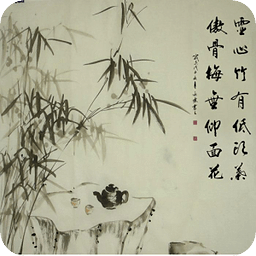 虚心竹有低头葉
傲骨梅無仰面花